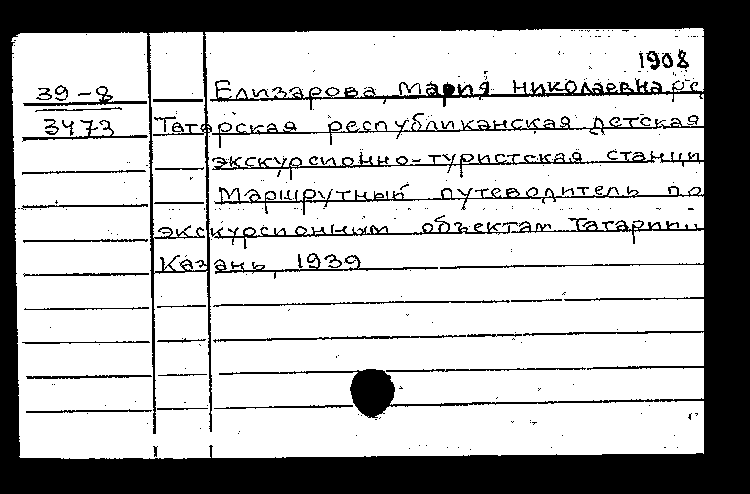 1908
39-8
Елизарова, Мария Николаевна ре
3473
Татарская республиканская детская
экскурсионно-туристская станци
Маршрутный путеводитель по
экскурсионным объектам Татарии.
Казань, 1939